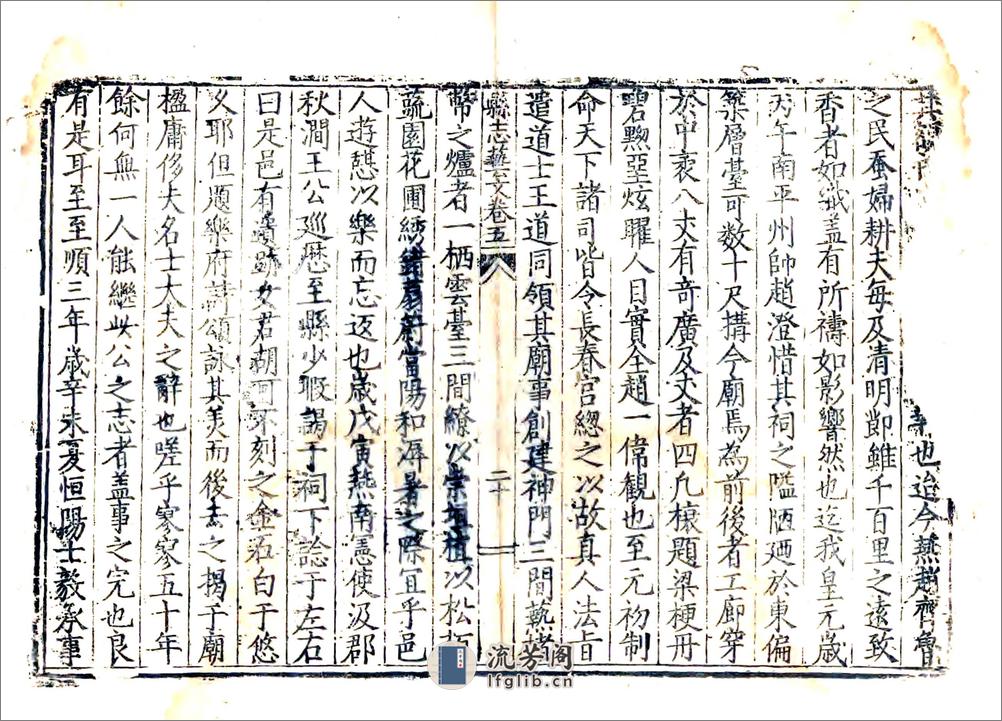 也迨今燕趙齊魯
之民蚕婦耕夫每及清明節雖千百里之遠致
香者如織盖有所禱如影響然也迄我皇元歲
丙午南平州帥趙澄惜其祠之隘陋廼於東偏
築層臺可数十尺搆今廟焉為前後者工廊穿
於中袤八丈有奇廣及丈者四凡榱題梁梗丹
碧黝堊炫耀人目實全趙一偉観也至元初制
命天下諸司皆令長春宮總之以故真人法旨
遣道士王道同領其廟事創建神門三間爇楮
幣之爐者一栖雲臺三間繚以崇垣植以松
縣志藝文卷五
二十
蔬園花圃綉錯當陽和溽暑之際宜乎邑
人遊憇以樂而忘返也歲戊寅燕南憲使汲郡
秋澗王公巡歷至縣少暇謁于祠下諗于左右
曰是邑有遺跡文君胡不刻之金石白于悠
久耶但題樂府詩頌詠其美而後去之揭于廟
楹庸侈夫名士大夫之辭也嗟乎寥寥五十年
餘何無一人能繼此公之志者盖事之完也良
有是耳至至順三年歲辛未夏恒陽士毅承事
流芳阁
lfglib.cn